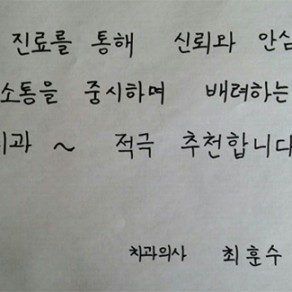 진료를 통해 신뢰와 안심
소통을 중시하며 배려하는
치과 ~ 적극 추천합니다
치과의사 최훈수